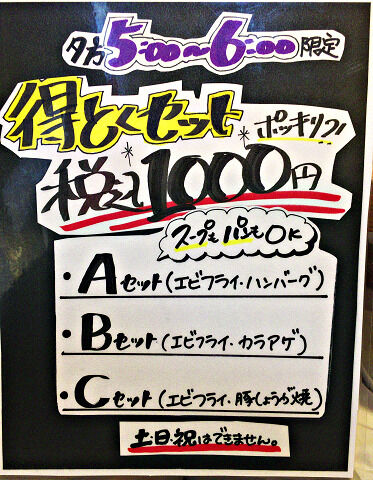 夕方5:00〜6:00限定
得とくセット
ポッキリ!
税込1000円
スープもパンもOK
・Aセット(エビフライ・ハンバーグ)
・Bセット(エビフライ・カラアゲ)
・Cセット(エビフライ・豚しょうが焼)
土・日・祝はできません。